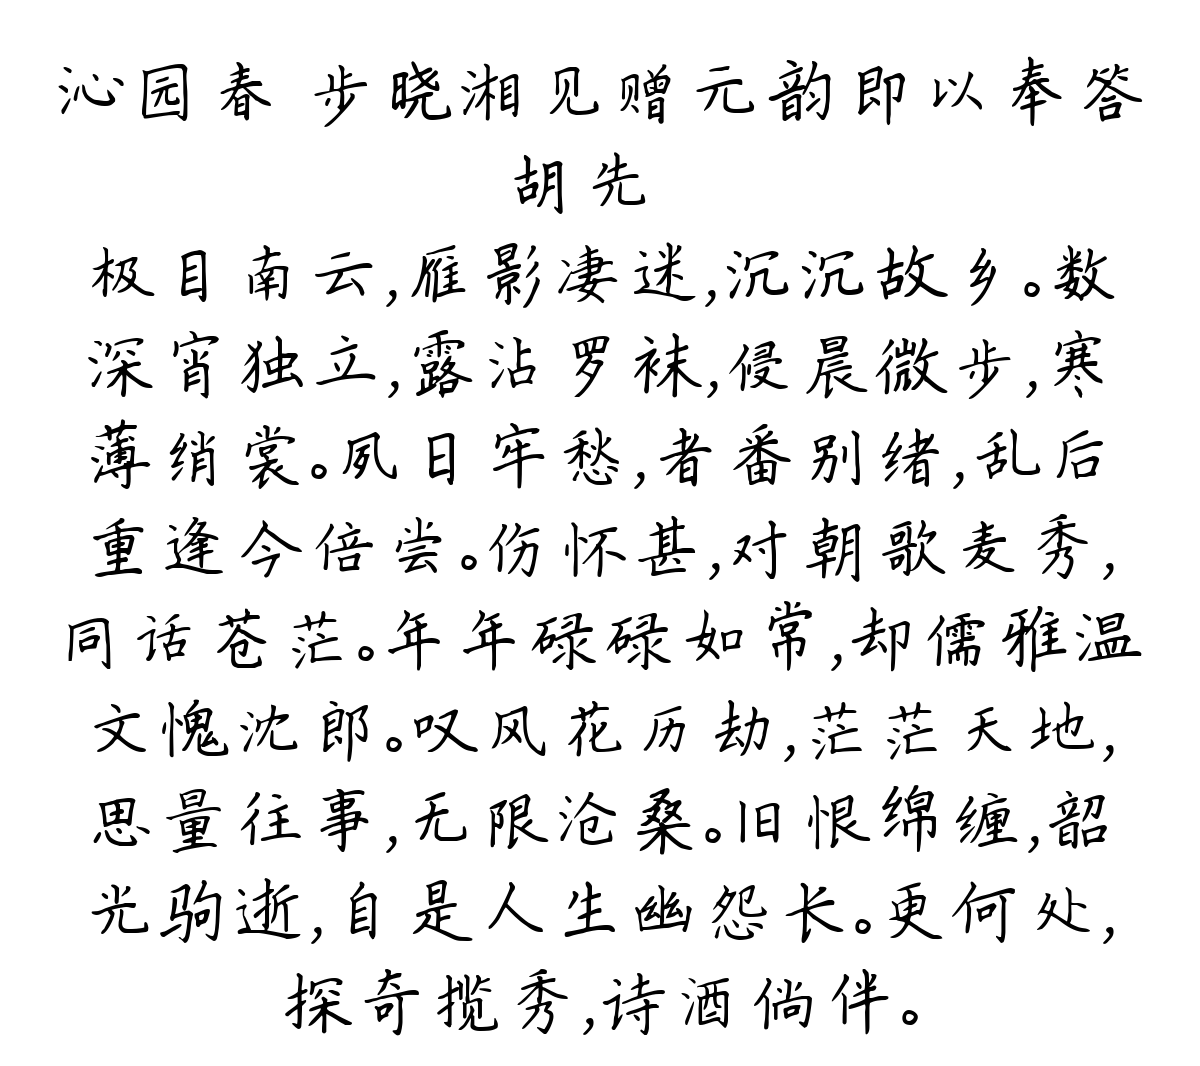 沁园春 步晓湘见赠元韵即以奉答
胡先
极目南云,雁影凄迷,沉沉故乡。数
深宵独立,露沾罗袜,侵晨微步,寒
薄绡裳。夙日牢愁,者番别绪,乱后
重逢今倍尝。伤怀甚,对朝歌麦秀,
同话苍茫。年年碌碌如常,却儒雅温
文愧沈郎。叹风花历劫,茫茫天地,
思量往事,无限沧桑。旧恨绵缠,韶
光驹逝,自是人生幽怨长。更何处,
探奇揽秀,诗酒倘伴。